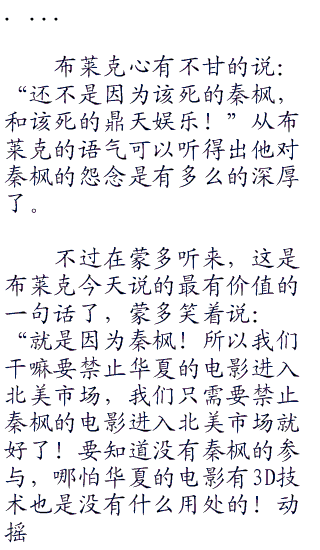 . ...
布莱克心有不甘的说：
“还不是因为该死的秦枫，
和该死的鼎天娱乐！”从布
莱克的语气可以听得出他对
秦枫的怨念是有多么的深厚
了。
不过在蒙多听来，这是
布莱克今天说的最有价值的
一句话了，蒙多笑着说：
“就是因为秦枫！所以我们
干嘛要禁止华夏的电影进入
北美市场，我们只需要禁止
秦枫的电影进入北美市场就
好了！要知道没有秦枫的参
与，哪怕华夏的电影有3D技
术也是没有什么用处的！动
摇